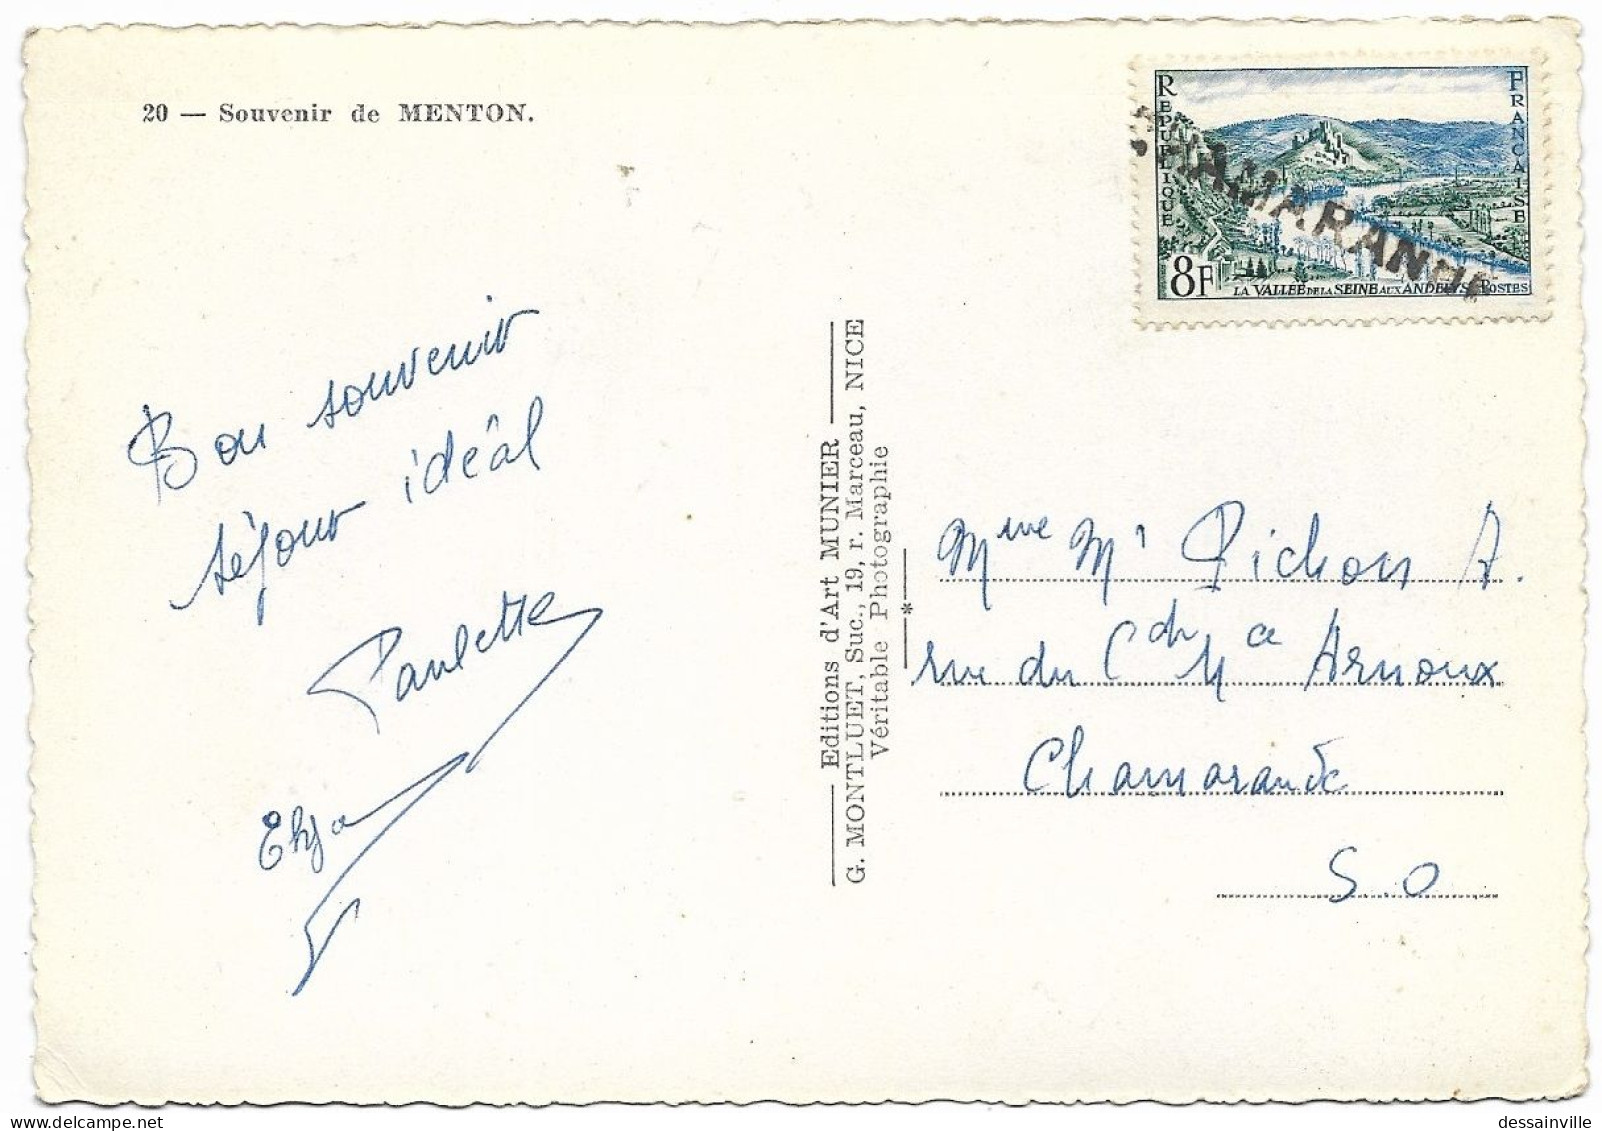 20 — Souvenir de MENTON.
RÉPUBLIQUE
FRANÇAISE
CHAMARANDE
8F
LA VALLÉE DE LA SEINE AUX ANDELYS POSTES
Bon souvenir
séjour idéal
Paulette
Editions d'Art MUNIER
G. MONTLUET, Suc., 19, r. Marceau, NICE
Véritable Photographie
Mme Mr Pichon A.
rue du Cdt Arnoux
Chamarande
S.O
dessainville